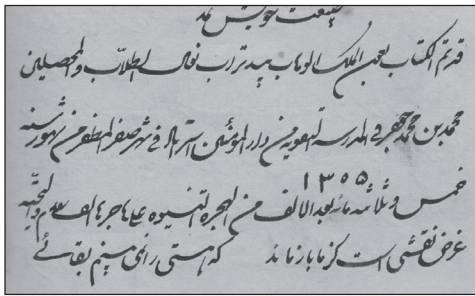 خویش مد
قد تم الکتاب بعون الملک الوهاب بید تراب نعال الطلاب و المحصلین
محمد بن محمد جعفر فی المدرسه التقویه من دار المؤمنین استراباد فی شهر صفر المظفر من شهور سنه
۱۳۰۵
خمس و ثلاثمائه بعد الالف من الهجره النبویه علی هاجرها الف سلام و التحیه
غرض نقشی است کز ما باز ماند که هستی را نمی بینم بقائی